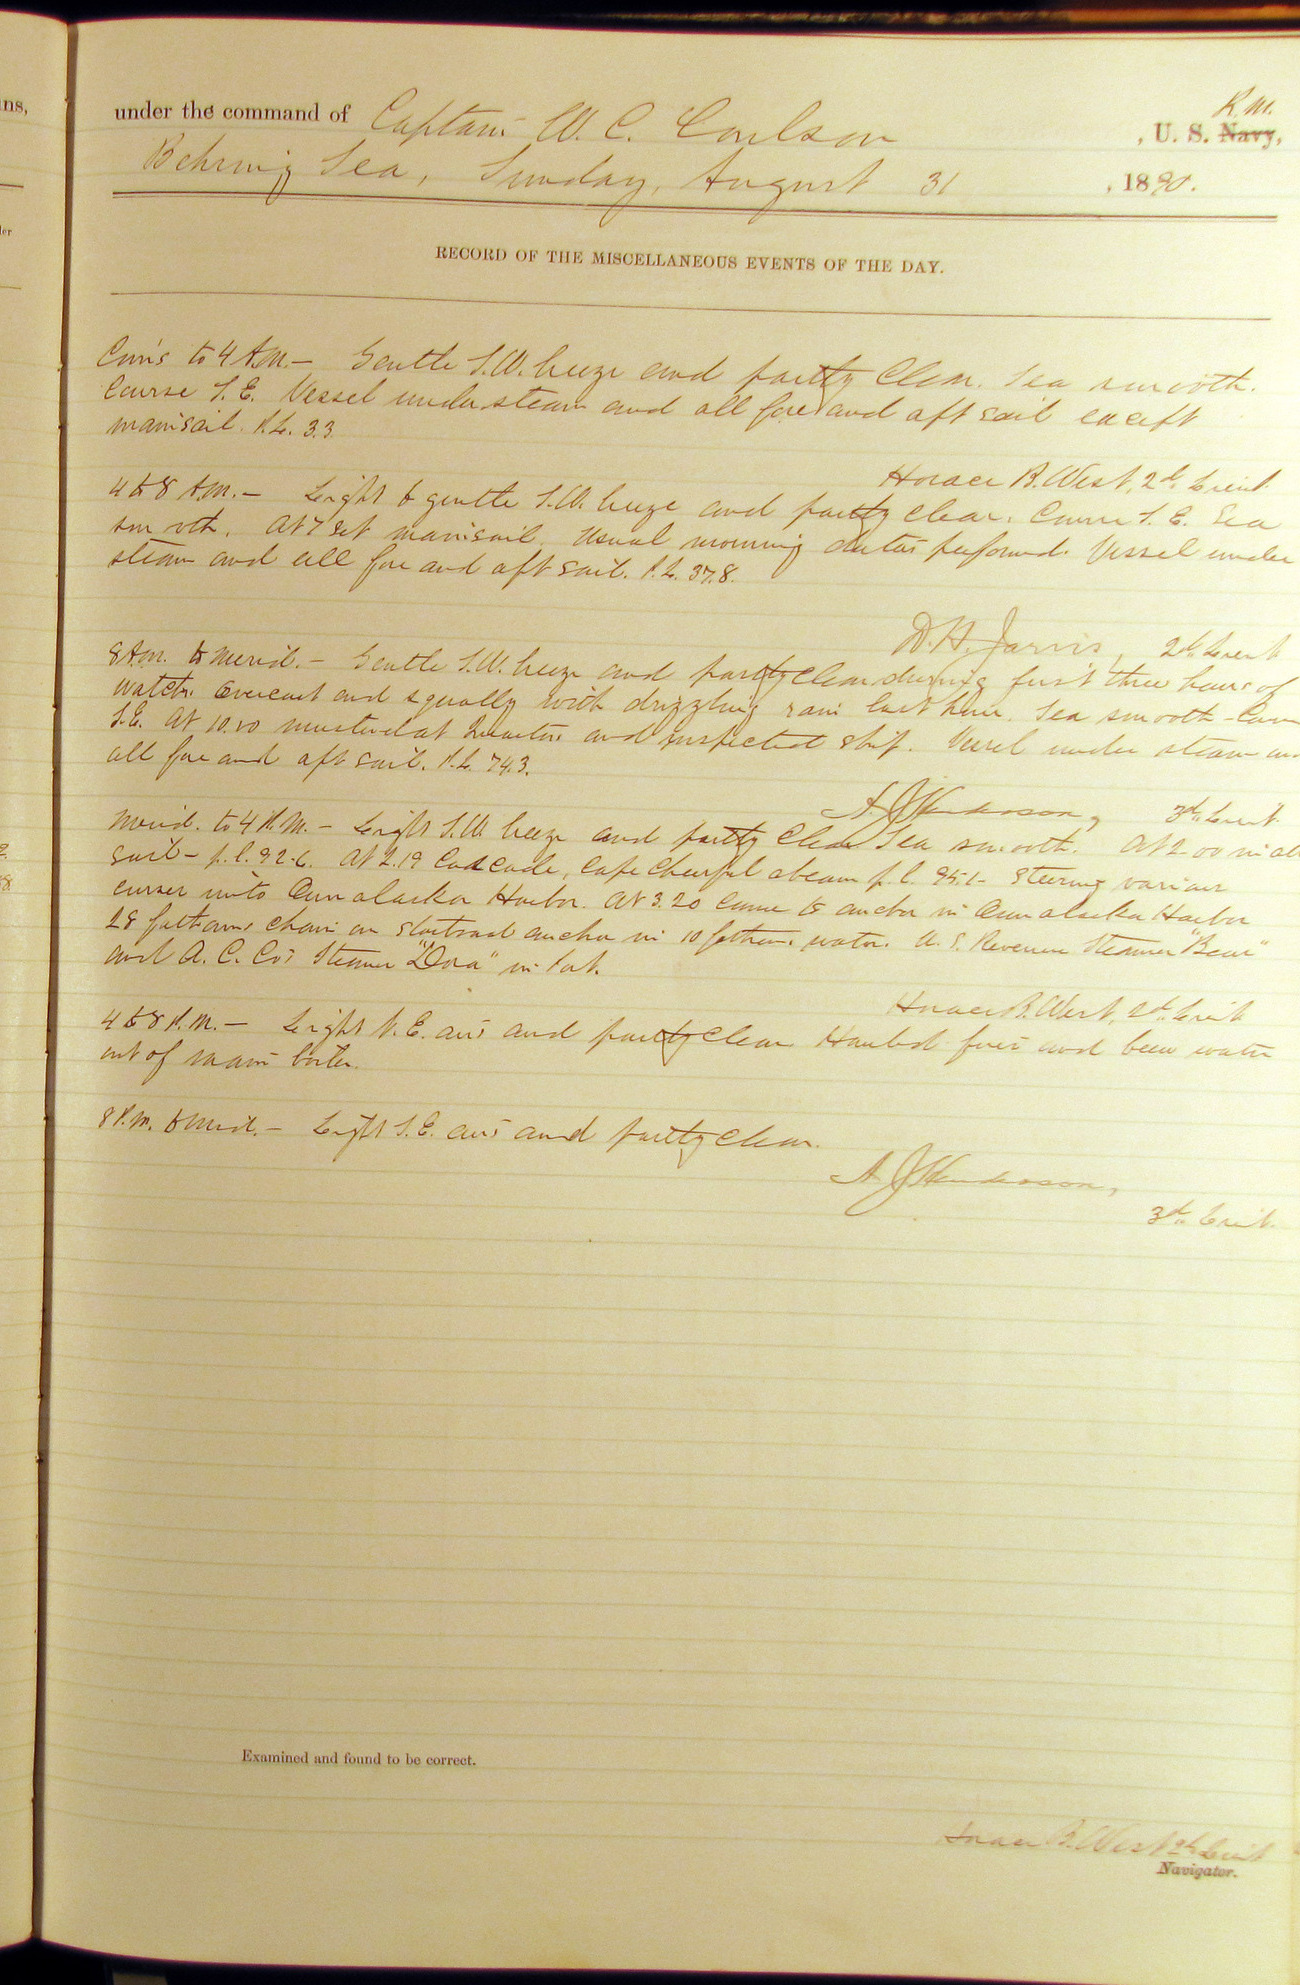 ins,
under the command of Captain W. C. Coulson , U. S. Navy, R. M.
Behring Sea, Sunday, August 31 , 1890.
RECORD OF THE MISCELLANEOUS EVENTS OF THE DAY.
Com's to 4 A.M. — Gentle S.W. breeze and partly clear. Sea smooth.
Course S.E. Vessel under steam and all fore and aft sail except
mainsail. P.L. 3.3
Horace B. West, 2d Lieut
4 to 8 A.M. — Light to gentle S.W. breeze and partly clear. Course S.E. Sea
smooth. At 7 set mainsail. Usual morning duties performed. Vessel under
steam and all fore and aft sail. P.L. 37.8.
D. H. Jarvis, 2d Lieut
8 A.M. to Merid. — Gentle S.W. breeze and partly clear during first three hours of
watch. Overcast and squally with drizzling rain last hour. Sea smooth –
S.E. At 10.00 mustered at Quarters and inspected ship. Vessel under steam
all fore and aft sail. P.L. 74.3.
A. J. Henderson, 3d Lieut.
Merid. to 4 P.M. — Light S.W. breeze and partly clear Sea smooth. At 2.00 in all
sail – p.l. 92.6. At 2.19 Cascade, Cape Cheerful abeam p.l. 95.1 – Steering various
courses into Ounalaska Harbor. At 3.20 came to anchor in Ounalaska Harbor
28 fathoms chain on starboard anchor in 10 fathoms water. U. S. Revenue Steamer "Bear"
and A. C. Co's Steamer "Dora" in Port.
Horace B. West 2d Lieut
4 to 8 P.M. — Light N.E. airs and partly clear Hauled fires and blew water
out of main boiler.
8 P.M. to Mid. — Light S.E. airs and partly clear.
A. J. Henderson,
3d Lieut.
Examined and found to be correct.
Horace B. West 2d Lieut
Navigator.